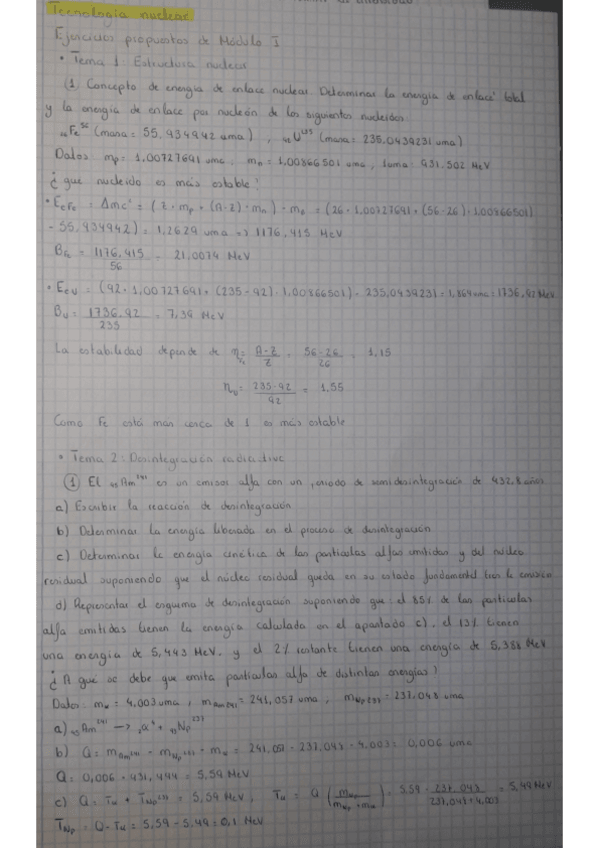 Tecnología nuclear
Ejercicios propuestos de Módulo I
• Tema 1: Estructura nuclear
① Concepto de energía de enlace nuclear. Determinar la energía de enlace total
y la energía de enlace por nucleón de los siguientes nucleidos:
₂₆Fe⁵⁶ (masa = 55,934942 uma), ₉₂U²³⁵ (masa = 235,0439231 uma)
Datos: mp = 1,00727691 uma, mn = 1,00866501 uma, 1uma = 931,502 MeV
¿que nucleido es más estable?
• E_cFe = Δmc² = (Z · mp + (A-Z) · mn) - m = (26 · 1,00727691 + (56-26) · 1,00866501)
- 55,934942) = 1,2629 uma => 1176,415 MeV
B_Fe = 1176,415 / 56 = 21,0074 MeV
• E_cU = (92 · 1,00727691 + (235-92) · 1,00866501) - 235,0439231 = 1,864 uma = 1736,92 MeV
B_U = 1736,92 / 235 = 7,39 MeV
La estabilidad depende de η_Fe = A-Z / Z = 56-26 / 26 = 1,15
η_U = 235-92 / 92 = 1,55
Como Fe está mas cerca de 1 es más estable
• Tema 2: Desintegración radiactiva
① El ₉₅Am²⁴¹ es un emisor alfa con un periodo de semidesintegración de 432,8 años
a) Escribir la reacción de desintegración
b) Determinar la energía liberada en el proceso de desintegración
c) Determinar la energía cinética de las partículas alfas emitidas y del núcleo
residual suponiendo que el núcleo residual queda en su estado fundamental tras la emisión
d) Representar el esquema de desintegración suponiendo que: el 85% de las partículas
alfa emitidas tienen la energía calculada en el apartado c), el 13% tienen
una energía de 5,443 MeV, y el 2% restante tienen una energía de 5,388 MeV
¿A qué se debe que emita partículas alfa de distintas energías?
Datos: mα = 4,003 uma, mAm241 = 241,057 uma, mNp237 = 237,048 uma
a) ₉₅Am²⁴¹ → ₂α⁴ + ₉₃Np²³⁷
b) Q = mAm²⁴¹ - mNp²³⁷ - mα = 241,057 - 237,048 - 4,003 = 0,006 uma
Q = 0,006 · 931,494 = 5,59 MeV
c) Q = Tα + TNp²³⁷ = 5,59 MeV, Tα = Q (mNp / mNp + mα) = 5,59 · 237,048 / 237,048 + 4,003 = 5,49 MeV
TNp = Q - Tα = 5,59 - 5,49 = 0,1 MeV